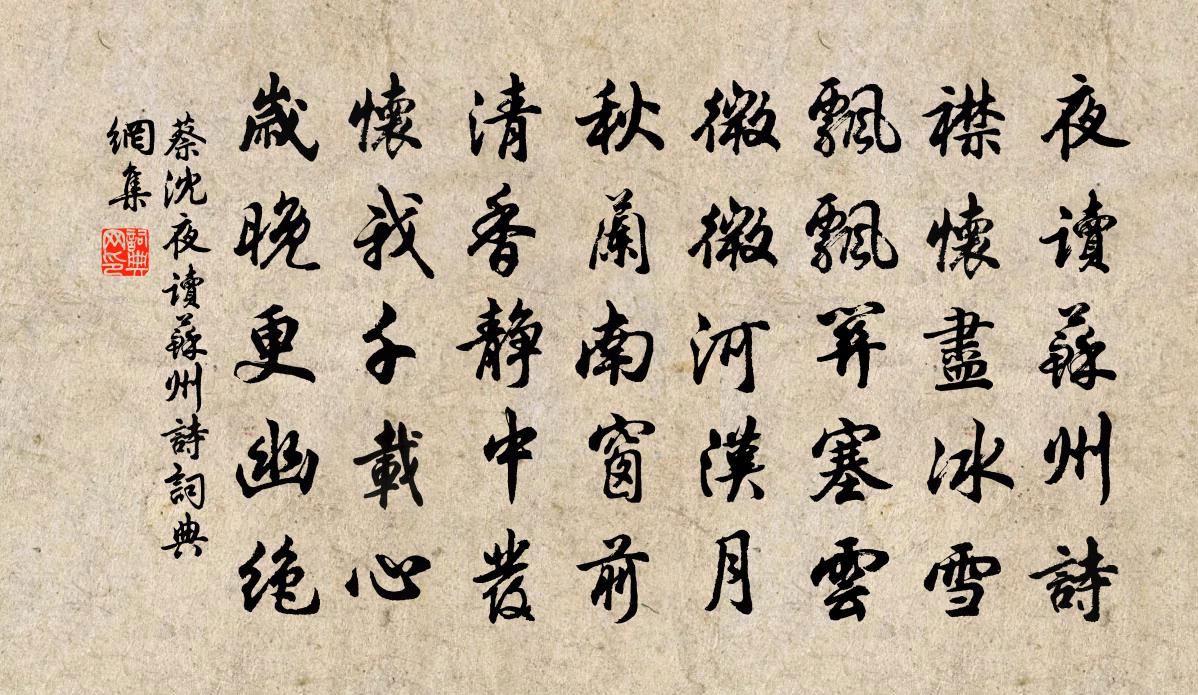 夜讀蘇州詩
襟懷盡冰雪
飄飄笄塞雲
微微河漢月
秋蘭南窗前
清香靜中發
懷我千載心
歲晚更幽絕
蔡沈夜讀蘇州詩詞典
網集
詞典
网印